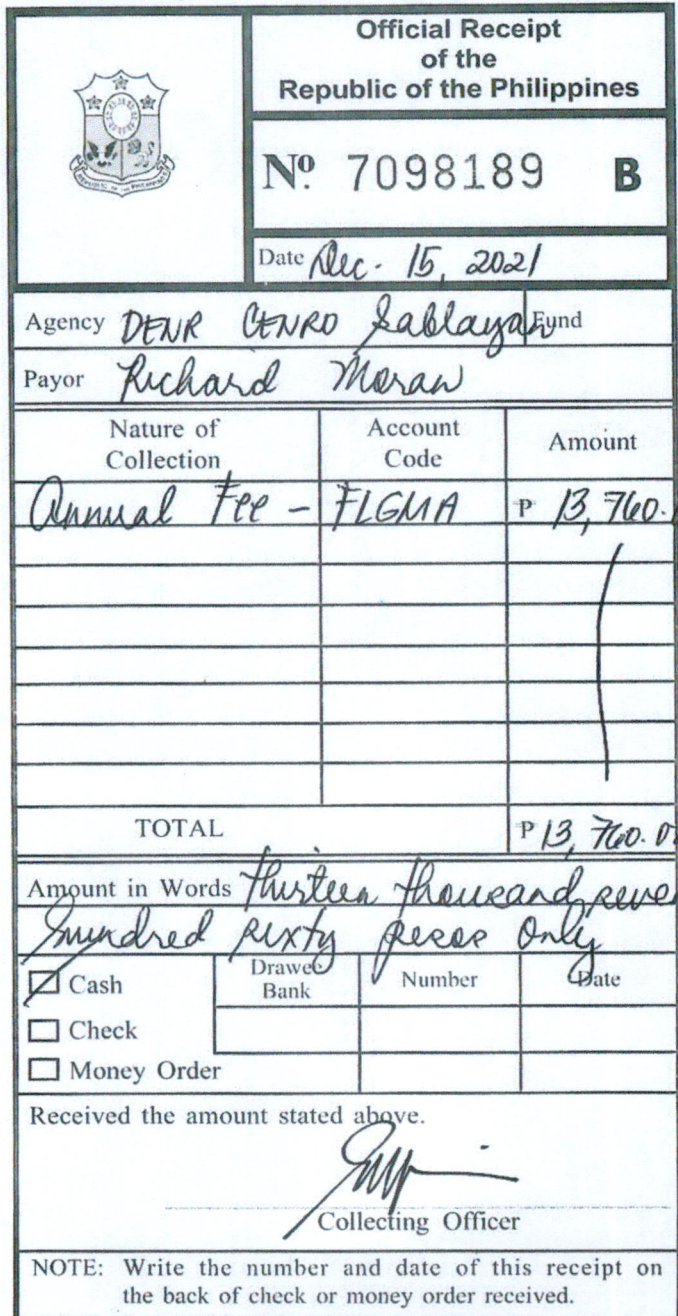 Official Receipt
of the
Republic of the Philippines
REPUBLIC OF THE PHILIPPINES
Nº 7098189 B
Date Dec. 15, 2021
Agency DENR CENRO Sablayan Fund
Payor Richard Moran
Nature of Collection Account Code Amount
Annual Fee - FLGMA ₱ 13,760.
TOTAL ₱ 13,760.0
Amount in Words Thirteen thousand seve
hundred sixty pesos only
Cash Drawee Bank Number Date
Check
Money Order
Received the amount stated above.
Collecting Officer
NOTE: Write the number and date of this receipt on
the back of check or money order received.